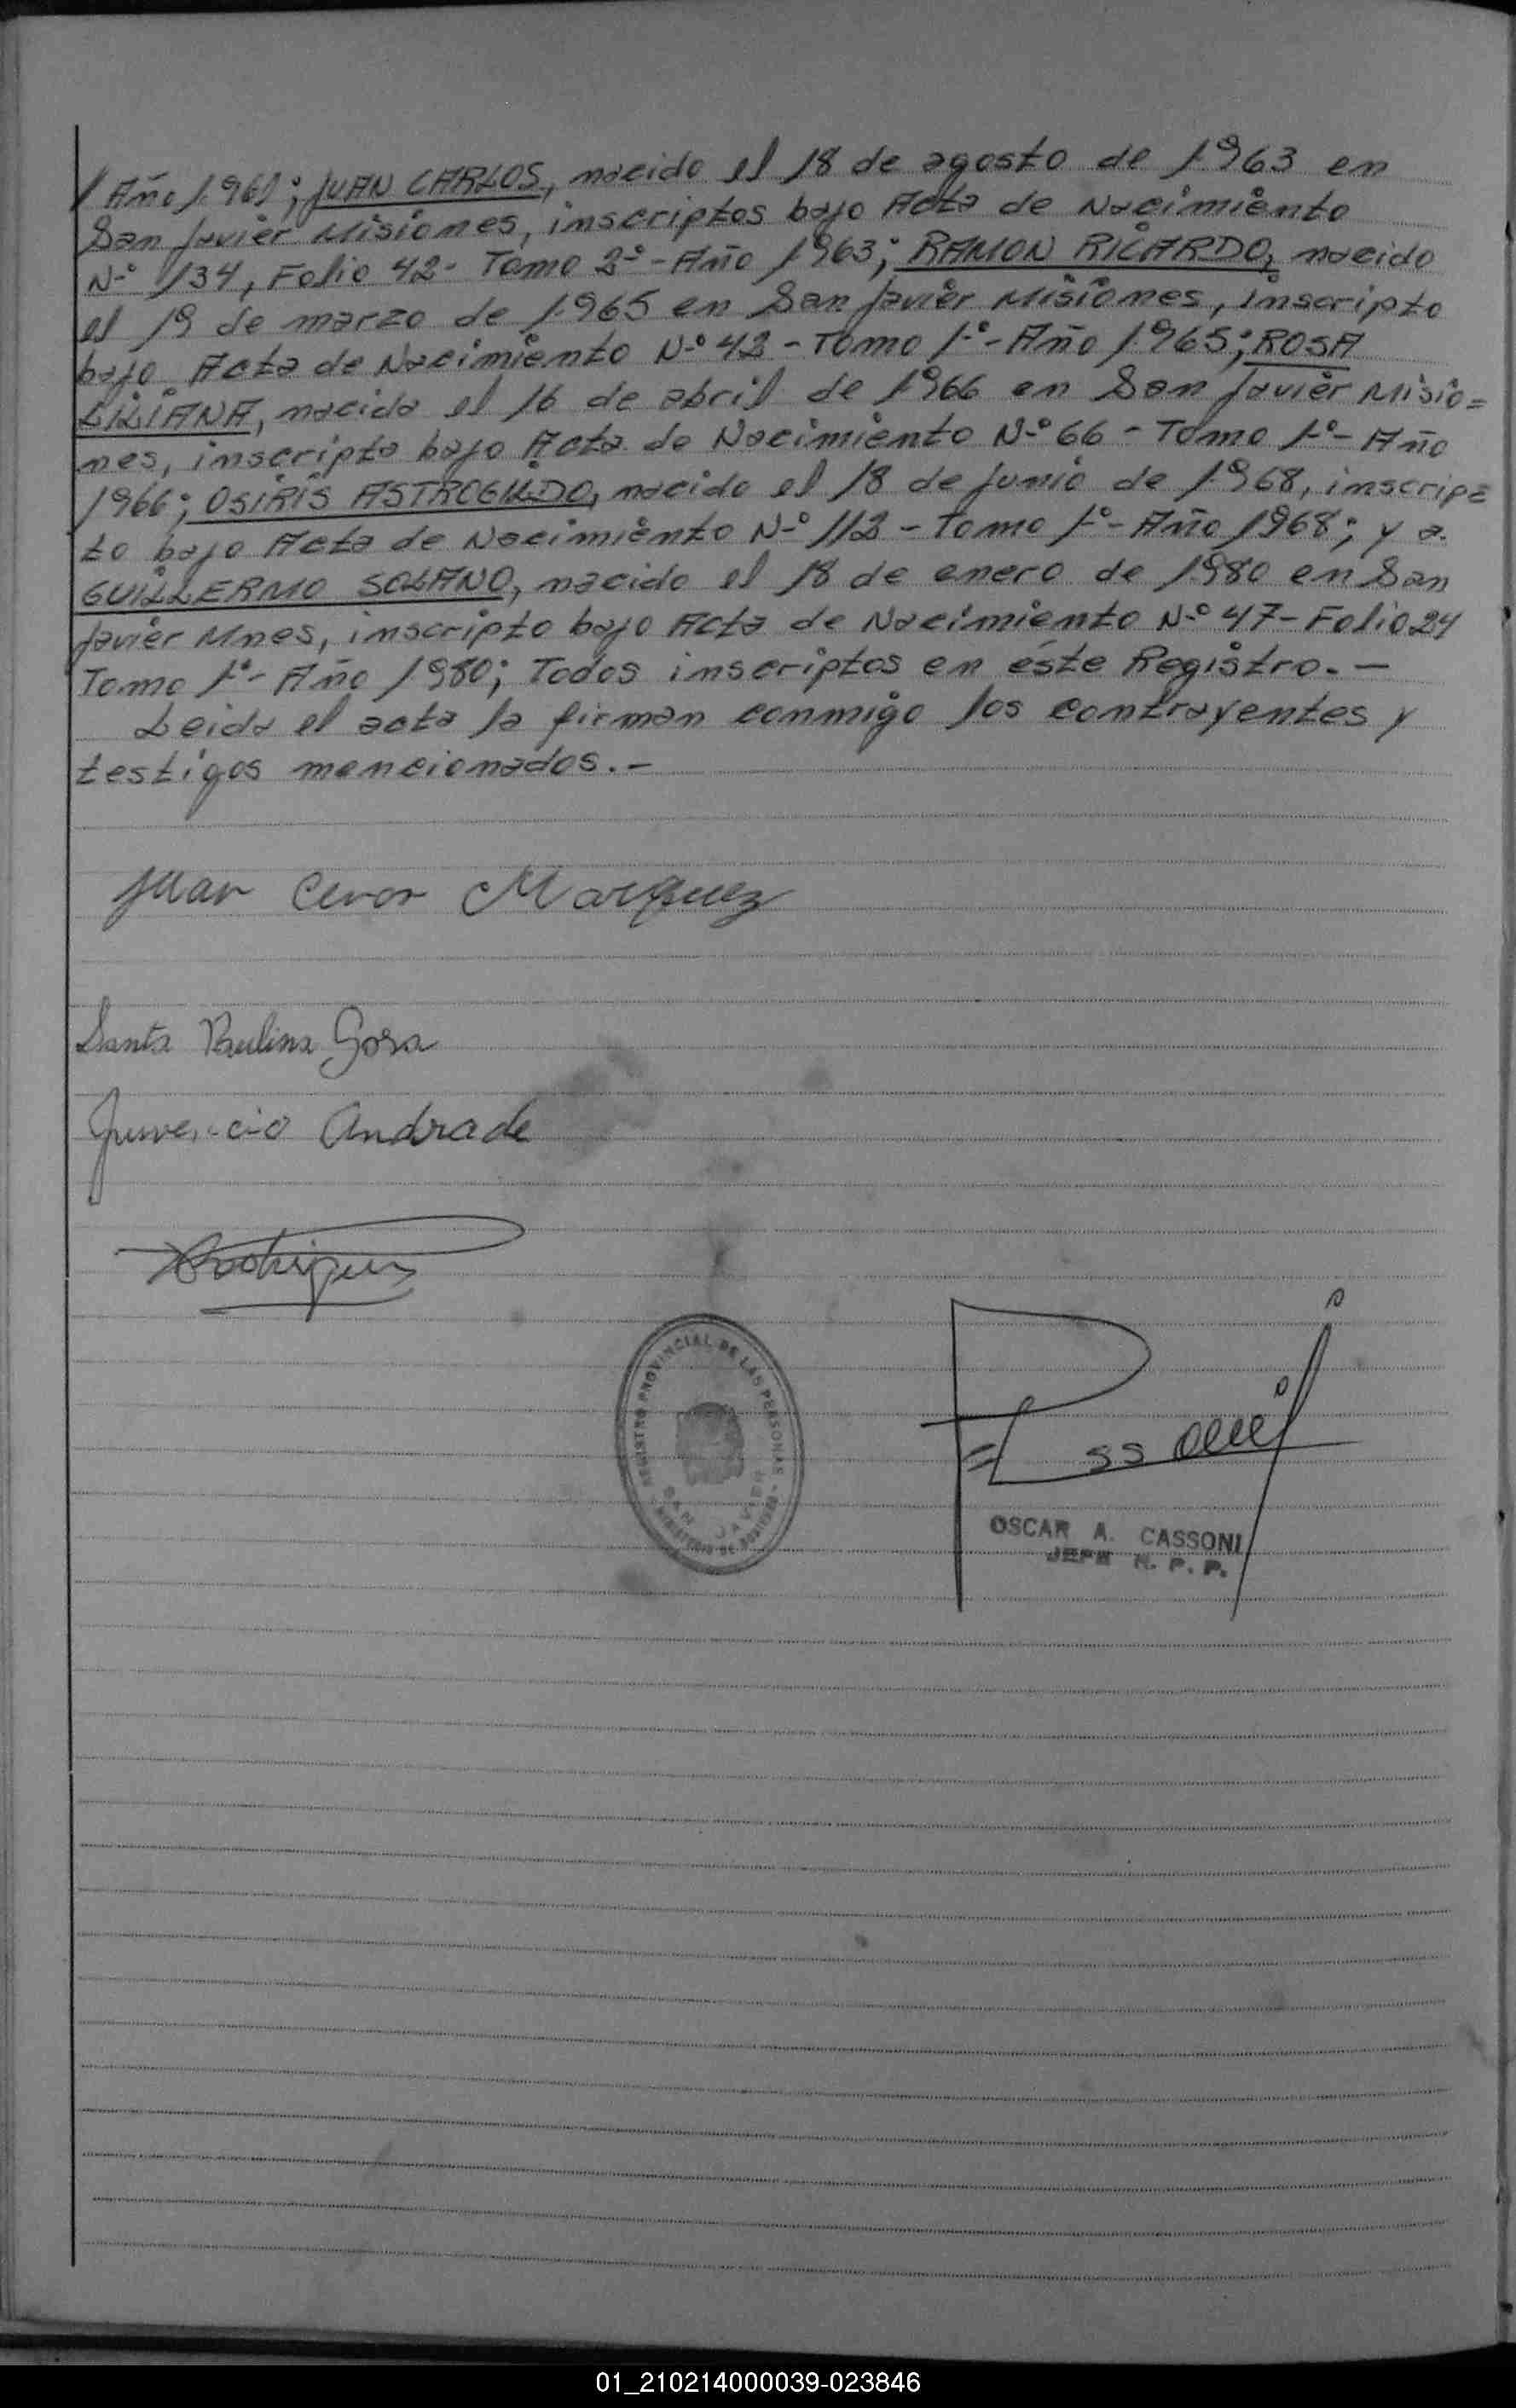 / Año 1.961; JUAN CARLOS, nacido el 18 de agosto de 1.963 en
San Javier Misiones, inscriptos bajo Acta de Nacimiento
N-º 134, Folio 42- Tomo 2º-Año 1963; RAMON RICARDO, nacido
el 19 de marzo de 1.965 en San Javier Misiones, inscripto
bajo Acta de Nacimiento N-º 42 - Tomo 1-º- Año 1.965; ROSA
LILIANA, nacida el 16 de abril de 1966 en San Javier Misio=
nes, inscripta bajo Acta de Nacimiento N-º 66 - Tomo 1-º- Año
1966; OSIRIS ASTROGILDO, nacido el 18 de Junio de 1.968, inscrip=
to bajo Acta de Nacimiento N-º 112 - Tomo 1-º- Año 1968; y a
GUILLERMO SOLANO, nacido el 18 de enero de 1980 en San
Javier Mnes, inscripto bajo Acta de Nacimiento N-º 47- Folio 24
Tomo 1º- Año 1980; Todos inscriptos en éste Registro. —
Leida el acta la firman conmigo los contrayentes y
testigos mencionados. -
Juan Marquez
Santa Paulina Sosa
Juvencio Andrade
Rodriguez
REGISTRO PROVINCIAL DE LAS PERSONAS
SAN JAVIER
MINISTERIO DE
OSCAR A. CASSONI
JEFE R. P. P.
01_210214000039-023846